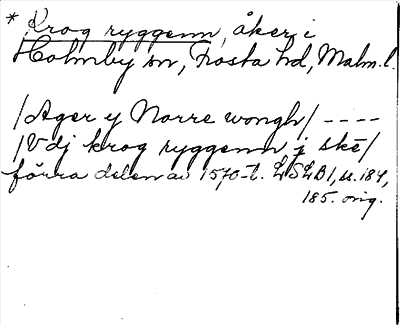 * Krog ryggenn, åker i
Holmby sn, Frosta hd, Malm. l.
/Ager y Norre wongh/ ----
/Vdj krog ryggenn j skē/
förra delen av 1570-t. LSLB1, s. 184,
185. orig.